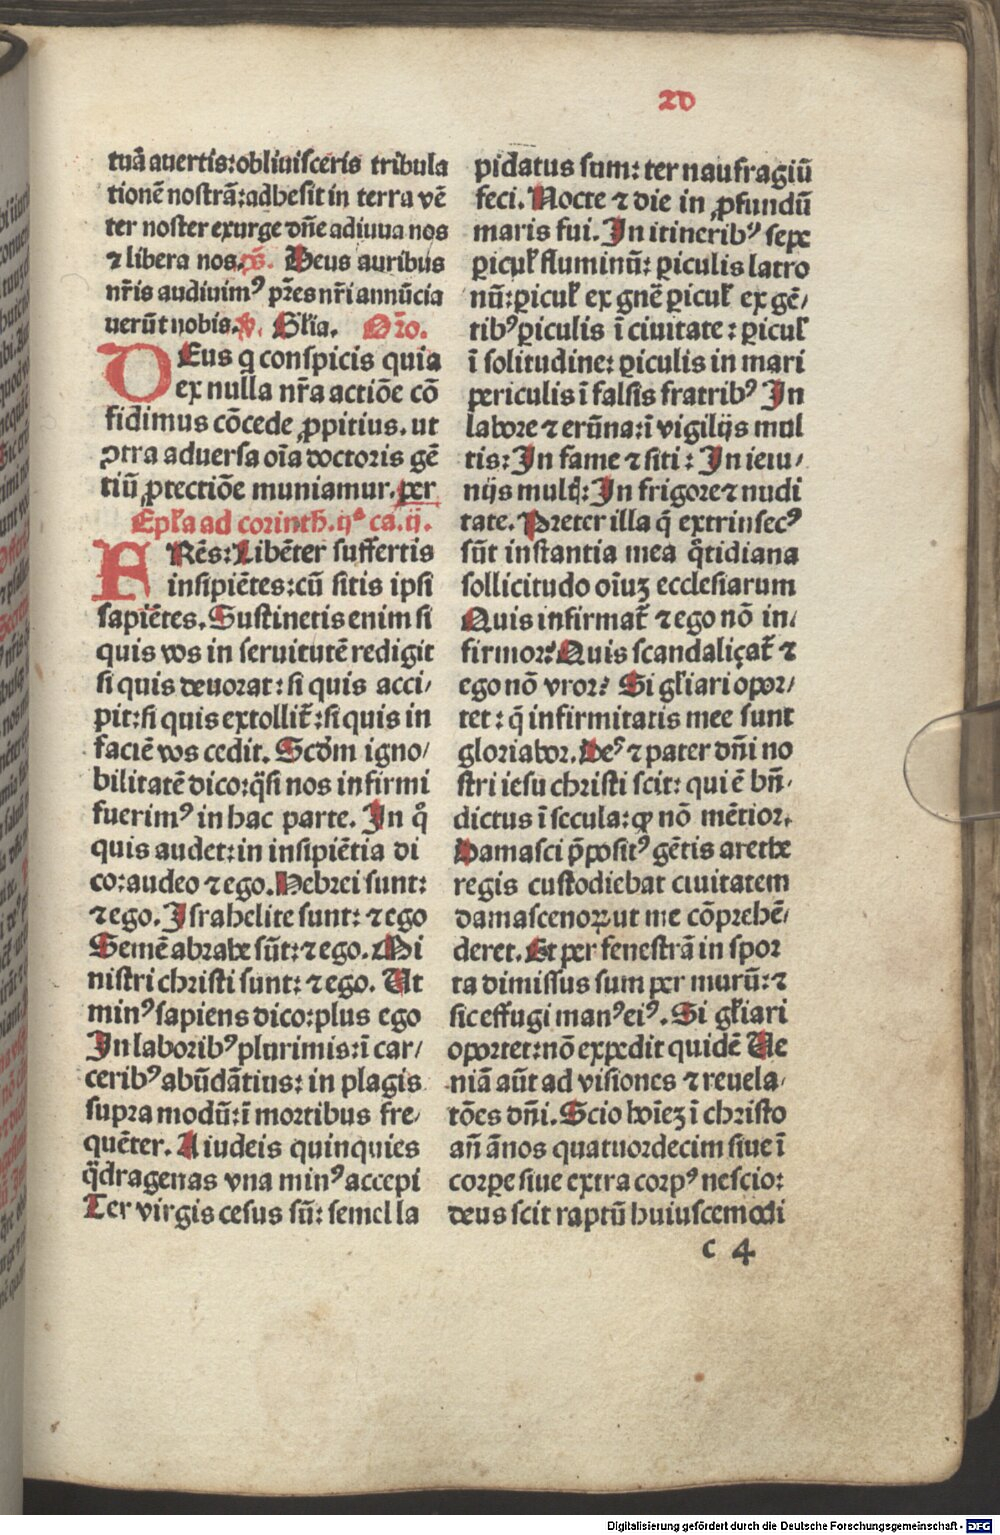 20
tuā auertis: obliuisceris tribula
tionē nostrā: adhesit in terra vē
ter noster exurge dn̄e adiuua nos
⁊ libera nos. ps̄. Deus auribus
nr̄is audiuimꝰ pr̄es nr̄i annūcia
uerūt nobis. v̄. Gl̄ia. Or̄o.
DEus q conspicis quia
ex nulla nr̄a actiōe cō
fidimus cōcede ꝓpitius. ut
ꝯtra aduersa oīa doctoris gē
tiū ꝓtectiōe muniamur. per
Epl̄a ad corinth̄. ijª ca. ij.
FRēs: Libēter suffertis
insipiētes: cū sitis ipsi
sapiētes. Sustinetis enim si
quis vos in seruitutē redigit
si quis deuorat: si quis acci/
pit: si quis extollit̄: si quis in
faciē vos cedit. Scd̄m igno/
bilitatē dico: q̄si nos infirmi
fuerimꝰ in hac parte. In qͦ
quis audet: in insipiētia di
co: audeo ⁊ ego. Hebrei sunt:
⁊ ego. Israhelite sunt: ⁊ ego
Semē abrahe sūt: ⁊ ego. Mi
nistri christi sunt: ⁊ ego. Ut
minꝰ sapiens dico: plus ego
In laboribꝰ plurimis: ī car/
ceribꝰ abūdātius: in plagis
supra modū: ī mortibus fre/
quēter. A iudeis quinquies
q̄dragenas vna minꝰ accepi
Ter virgis cesus sū: semel la
pidatus sum: ter naufragiū
feci. Nocte ⁊ die in ꝓfundū
maris fui. In itineribꝰ sepe
ꝑicul̄ fluminū: ꝑiculis latro
nū: ꝑicul̄ ex gn̄ē ꝑicul̄ ex gē/
tibꝰ ꝑiculis ī ciuitate: ꝑicul̄
ī solitudine: ꝑiculis in mari
periculis ī falsis fratribꝰ In
labore ⁊ erūna: ī vigilijs mul
tis: In fame ⁊ siti: In ieiu/
nijs multꝭ: In frigore ⁊ nudi
tate. Preter illa q̄ extrinsecꝰ
sūt instantia mea q̄tidiana
sollicitudo oīuꝫ ecclesiarum
Quis infirmat̄ ⁊ ego nō in/
firmor? Quis scandaliçat̄ ⁊
ego nō vror? Si gl̄iari opor/
tet: q̄ infirmitatis mee sunt
gloriabor. Deꝰ ⁊ pater dn̄i no
stri iesu christi scit: qui ē bn̄/
dictus ī secula: ꝙ nō mētior.
Damasci p̄positꝰ gētis arethe
regis custodiebat ciuitatem
damascenoꝝ ut me cōprehē/
deret. Et per fenestrā in spor
ta dimissus sum per murū: ⁊
sic effugi manꝰ eiꝰ. Si gl̄iari
oportet: nō expedit quidē Ue
niā aūt ad visiones ⁊ reuela/
tōes dn̄i. Scio hoīeꝫ ī christo
an̄ ānos quatuordecim siue ī
corpe siue extra corpꝰ nescio:
deus scit raptū huiuscemodi
c 4
Digitalisierung gefördert durch die Deutsche Forschungsgemeinschaft - DFG